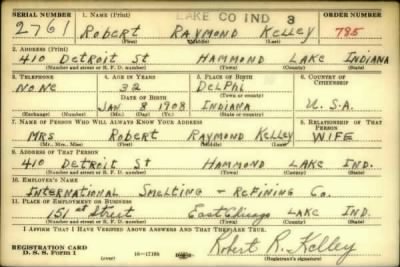 SERIAL NUMBER 1. NAME (Print) LAKE CO IND 3 ORDER NUMBER
2761 ROBERT RAYMOND KELLEY 785
(First) (Middle) (Last)
2. ADDRESS (Print)
410 DETROIT ST HAMMOND LAKE INDIANA
(Number and street or R. F. D. number) (Town) (County) (State)
3. TELEPHONE 4. AGE IN YEARS 5. PLACE OF BIRTH 6. COUNTRY OF CITIZENSHIP
NONE 32 DELPHI
DATE OF BIRTH (Town or county)
JAN 8 1908 INDIANA U.S.A.
(Exchange) (Number) (Mo.) (Day) (Yr.) (State or country)
7. NAME OF PERSON WHO WILL ALWAYS KNOW YOUR ADDRESS 8. RELATIONSHIP OF THAT PERSON
MRS ROBERT RAYMOND KELLEY WIFE
(Mr., Mrs., Miss) (First) (Middle) (Last)
9. ADDRESS OF THAT PERSON
410 DETROIT ST HAMMOND LAKE IND.
(Number and street or R. F. D. number) (Town) (County) (State)
10. EMPLOYER'S NAME
INTERNATIONAL SMELTING - REFINING CO.
11. PLACE OF EMPLOYMENT OR BUSINESS
151st STREET EAST CHICAGO LAKE IND.
(Number and street or R. F. D. number) (Town) (County) (State)
I AFFIRM THAT I HAVE VERIFIED ABOVE ANSWERS AND THAT THEY ARE TRUE.
REGISTRATION CARD Robert R. Kelley
D. S. S. FORM 1 (over) 16-17105 (Registrant's signature)